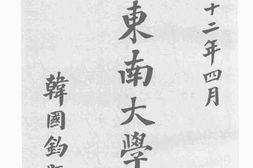 十二年四月
東南大學
韓國鈞